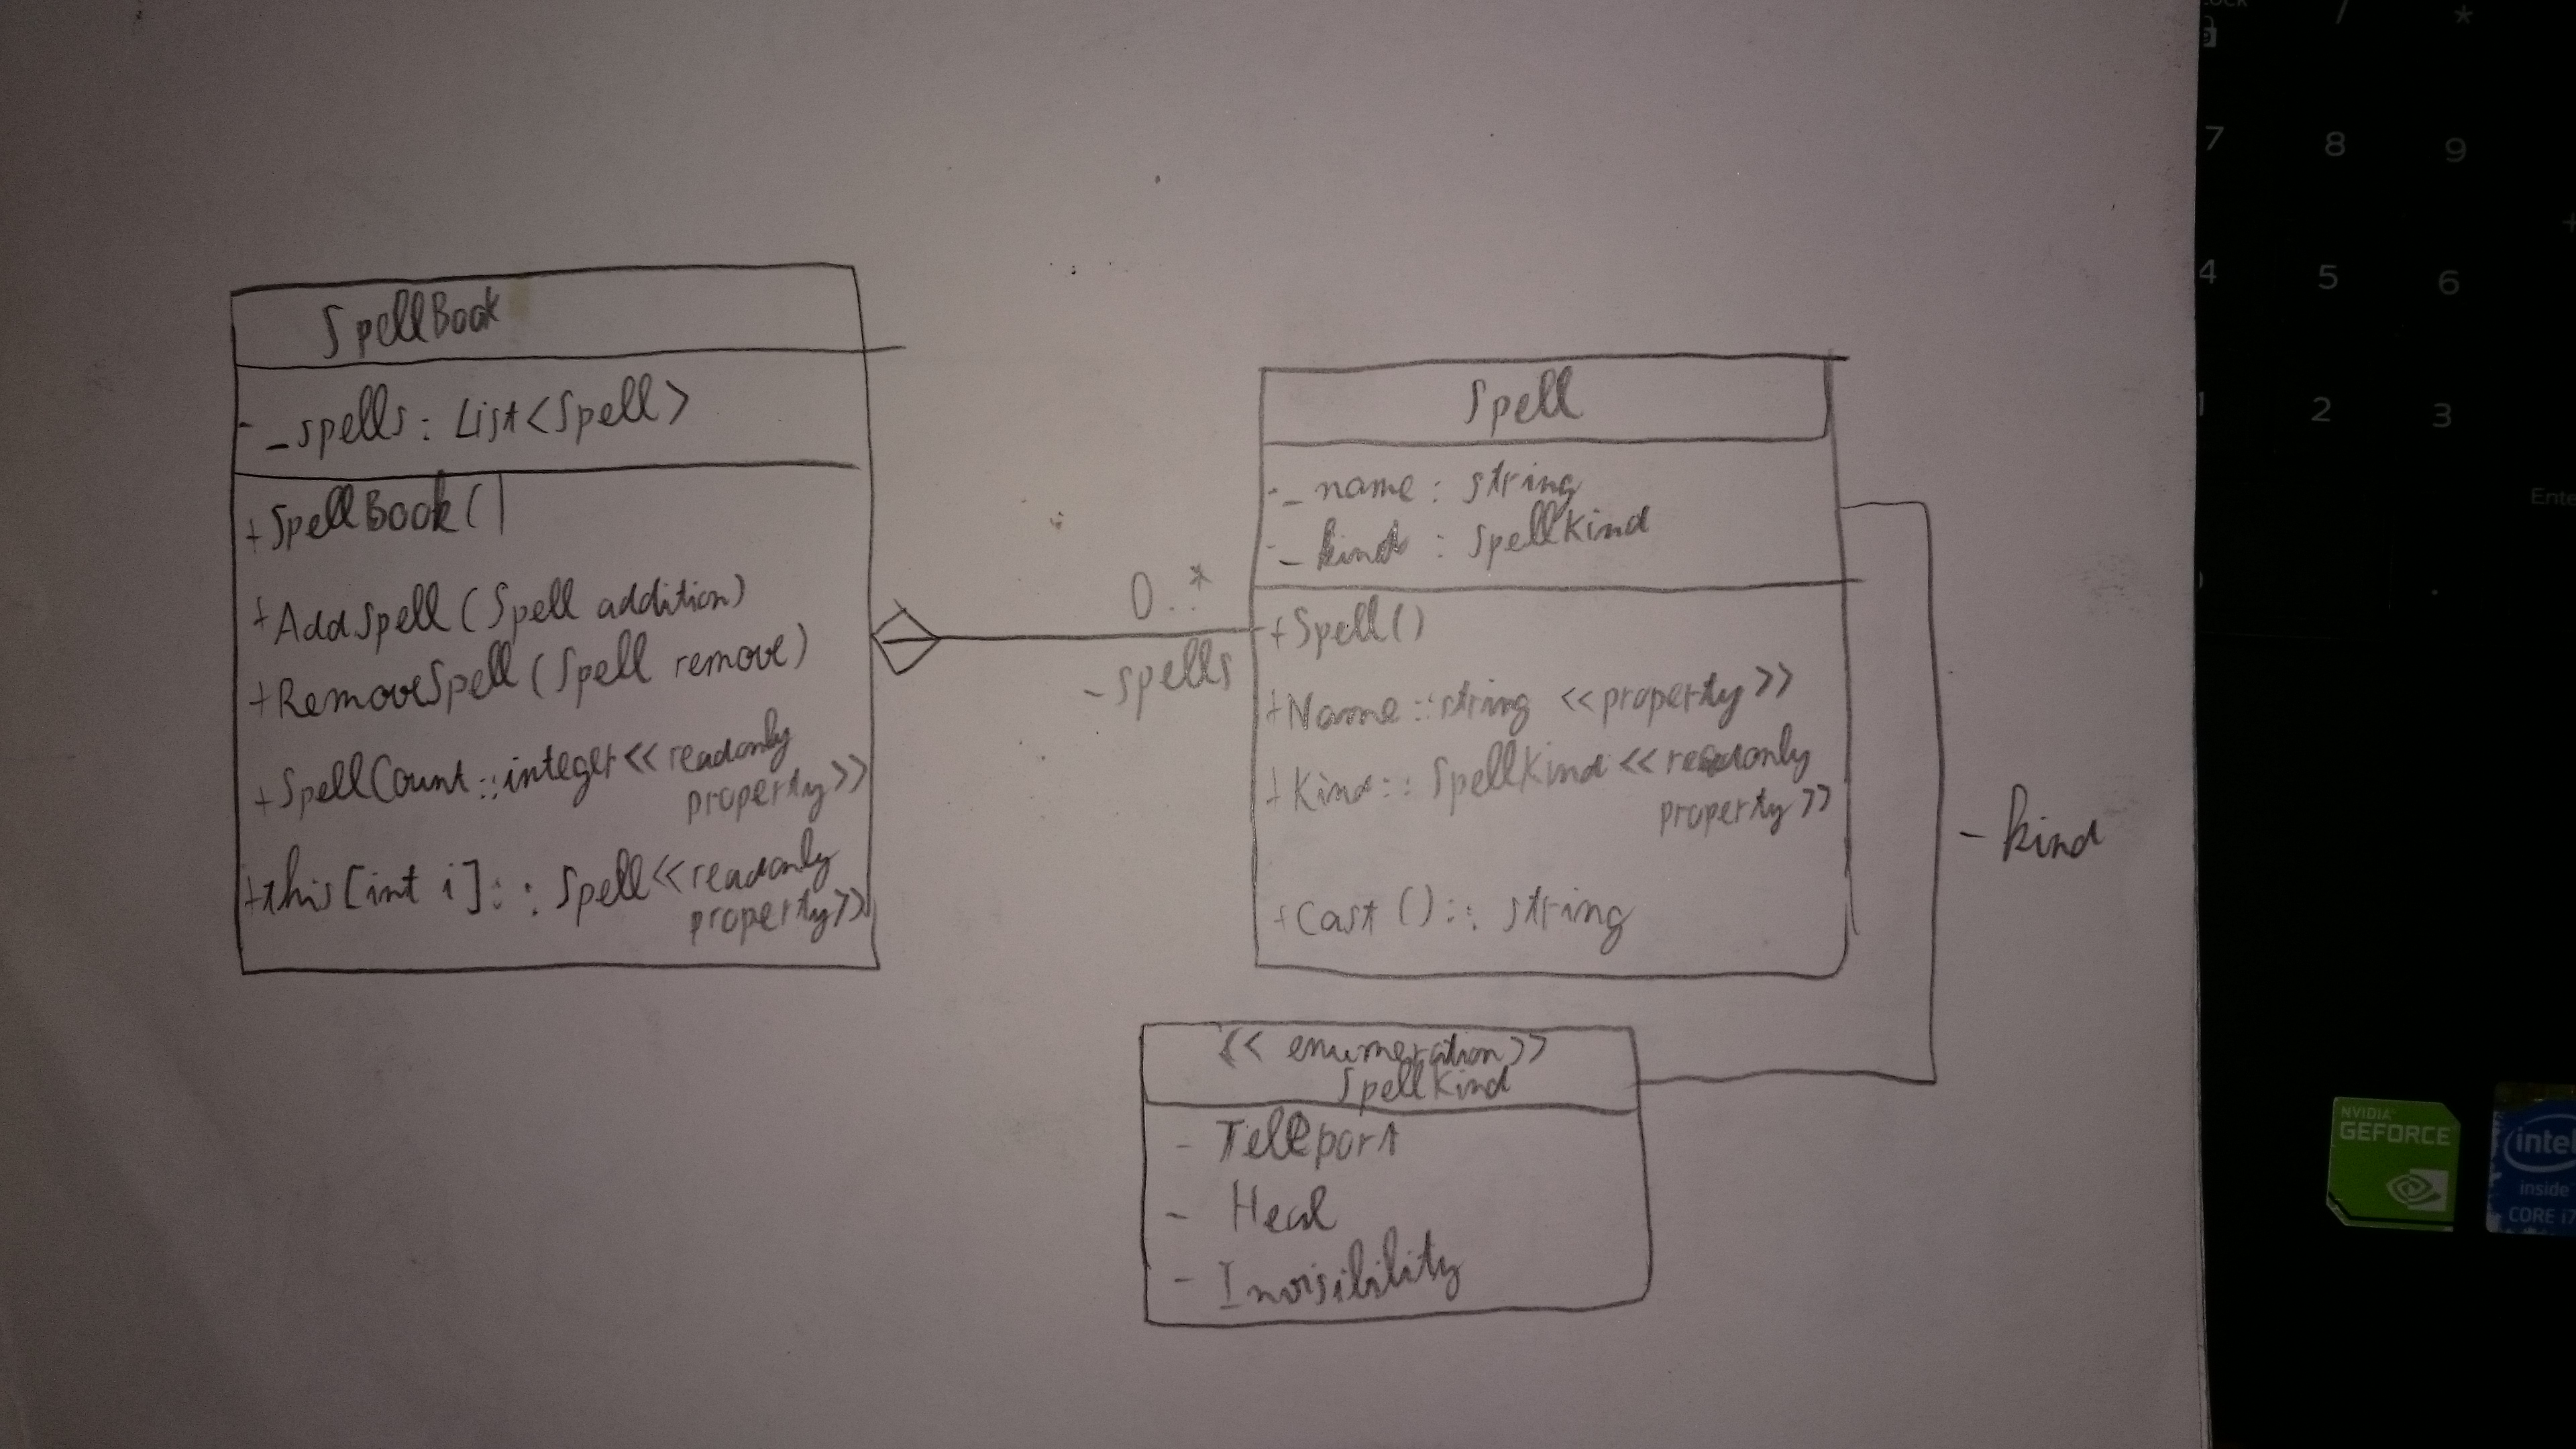 SpellBook
- _spells : List<Spell>
+ SpellBook()
+ AddSpell (Spell addition)
+ RemoveSpell (Spell remove)
+ SpellCount :: integer << readonly
property >>
+ this [int i] :: Spell << readonly
property >>
0..*
- spells
Spell
- _name : string
- _kind : SpellKind
+ Spell()
+ Name :: string << property >>
+ Kind :: SpellKind << readonly
property >>
+ Cast () :: string
- kind
<< enumeration >>
SpellKind
- Teleport
- Heal
- Invisibility
/ *
7 8 9
+
4 5 6
1 2 3
Ente
.
NVIDIA
GEFORCE
intel
inside
CORE i7